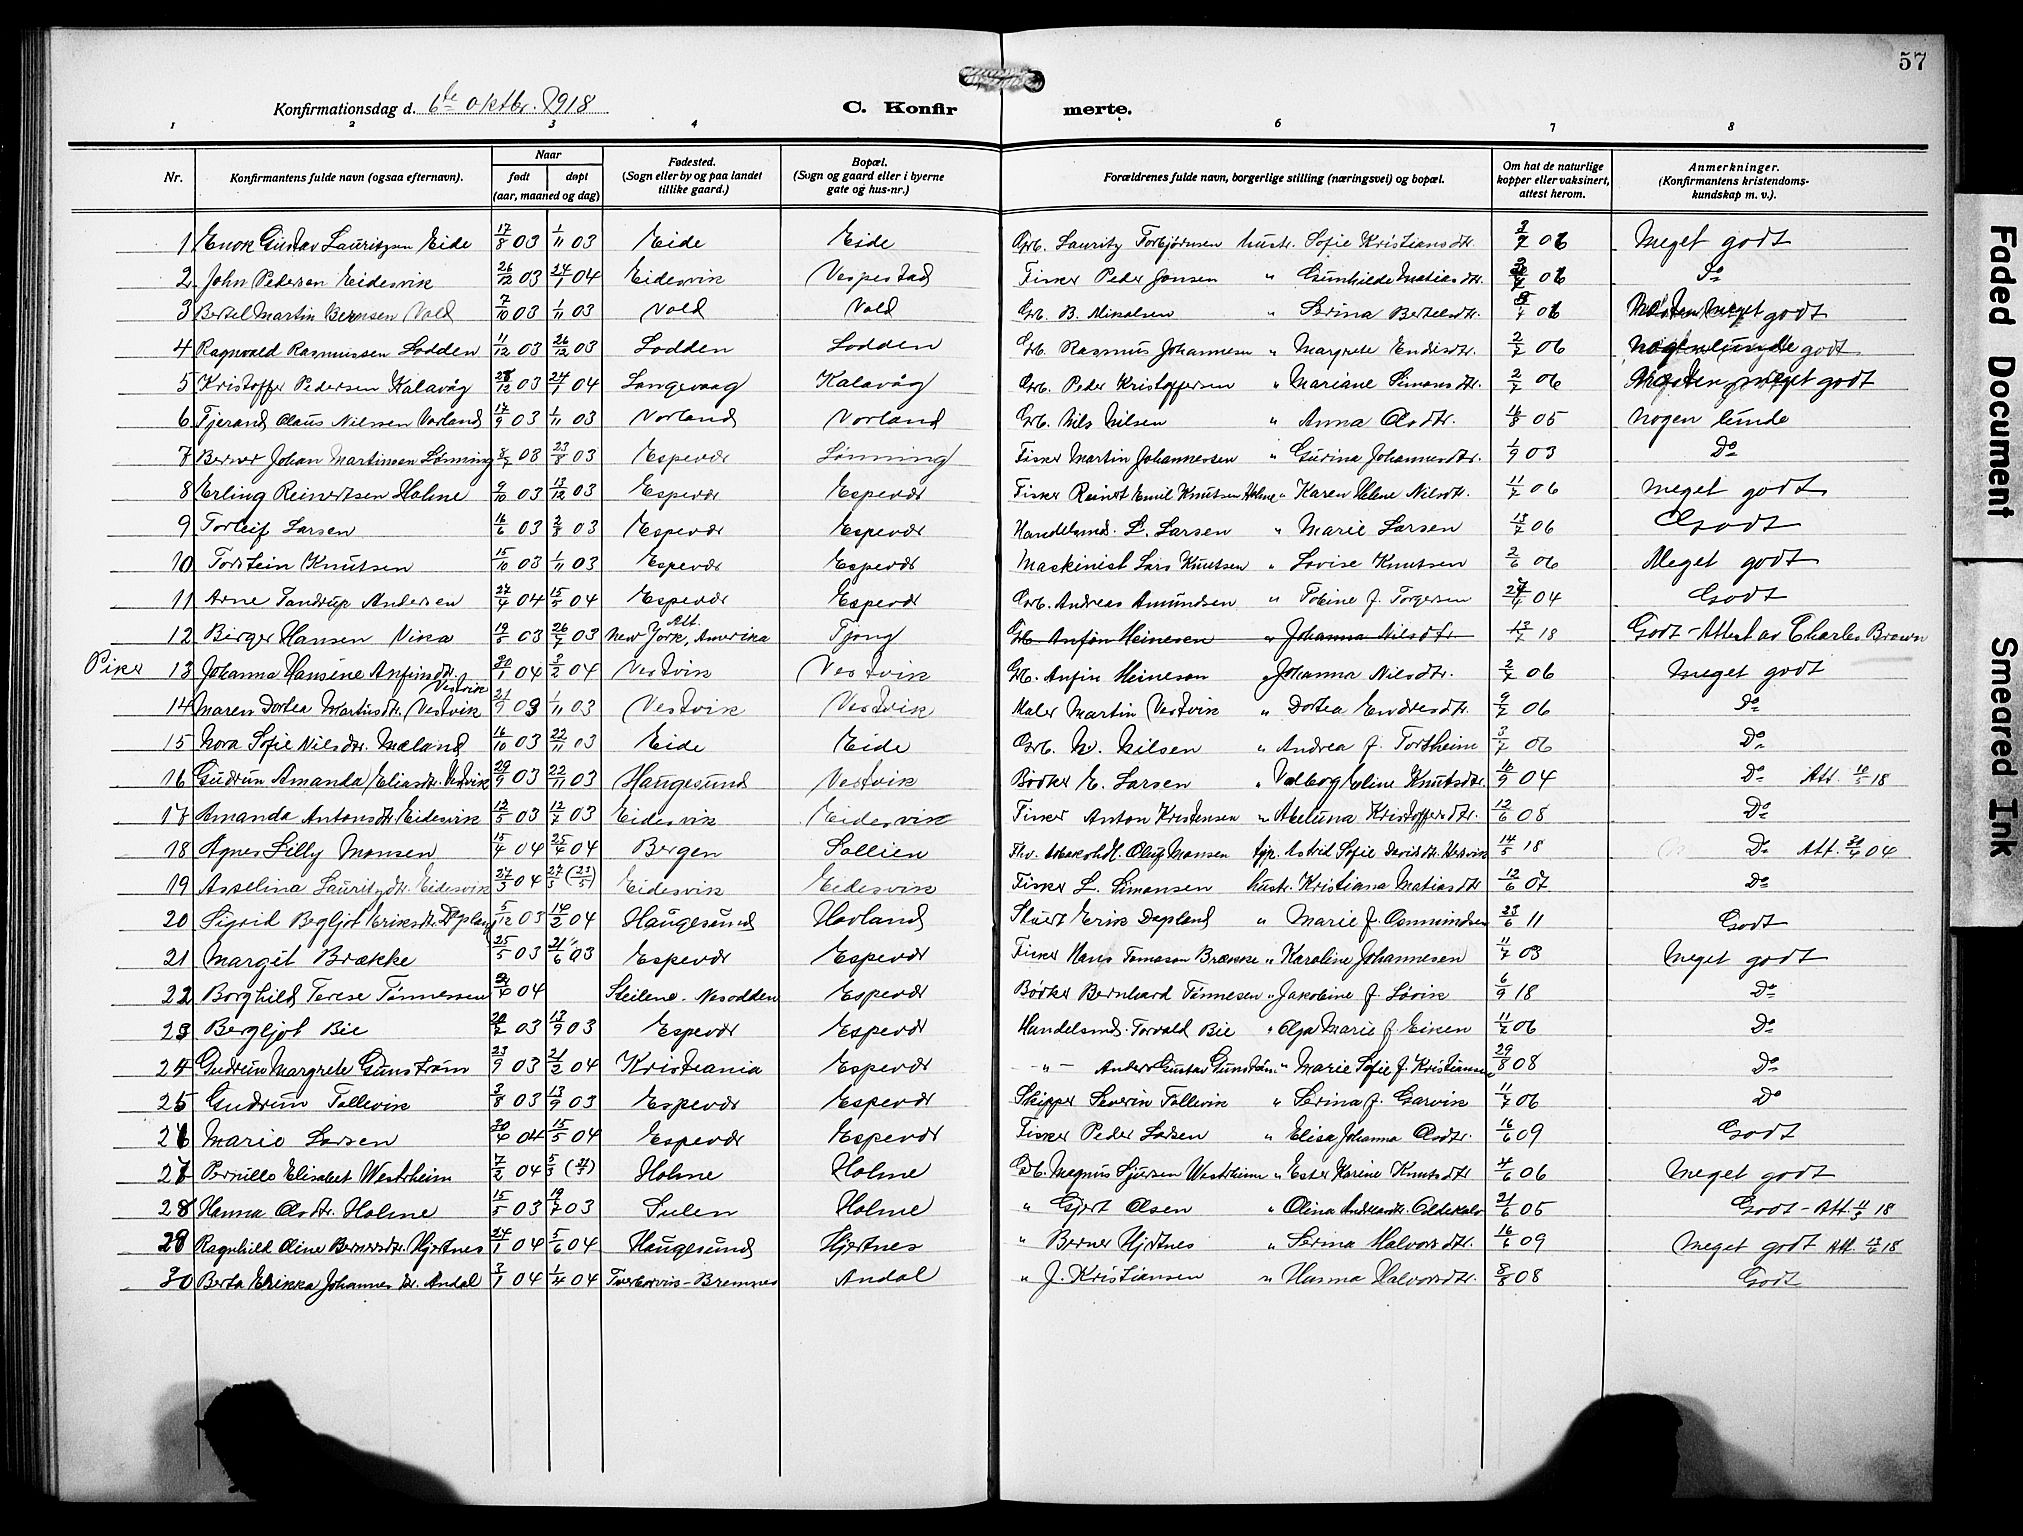 57
Konfirmationsdag d. 6te oktbr. 1918
C. Konfirmerte.
1 2 3 4 6 7 8
Nr. | Konfirmantens fulde navn (ogsaa efternavn). | Naar født døpt (aar, maaned og dag) | Fødested. (Sogn eller by og paa landet tillike gaard.) | Bopæl. (Sogn og gaard eller i byerne gate og hus-nr.) | Forældrenes fulde navn, borgerlige stilling (næringsvei) og bopæl. | Om hat de naturlige kopper eller vaksinert, attest herom. | Anmerkninger. (Konfirmantens kristendoms-kundskap m. v.).
1 Enok Gustav Lauritzsen Eide 17/8 03 1/11 03 Eide Eide Grb. Lauritz Torbjørnsen hustr. Sofie Kristiansdtr. 06 Meget godt
2 John Pedersen Eidesvik 26/12 03 24/1 04 Eidesvik Vespestad Fisker Peder Jonsen " Gunhilde Matiasdtr. 06 Do
3 Bertel Martin Bernsen Vold 7/10 03 1/11 03 Vold Vold Grb. B. Mikalsen " Serina Bertelsdtr. 06 godt
4 Ragnvald Rasmussen Lodden 11/12 03 26/12 03 Lodden Lodden Grb. Rasmus Johannesen " Margrete Endresdtr. 2/7 06 godt
5 Kristoffer Pedersen Kalavåg 28/12 03 24/1 04 Langevaag Kalavåg Grb. Peder Kristoffersen " Mariane Simonsdtr. 2/7 06 godt
6 Tjerand Olaus Nilssen Vorland 17/9 03 1/11 03 Vorland Vorland Grb. Nils Nilsen " Anna Olsdtr. 16/8 05 Nogen lunde
7 Berner Johan Martinsen Lønning 8/7 03 23/8 03 Espevær Lønning Fisker Martin Johannessen " Gurina Johannesdtr. 1/9 03 Do
8 Erling Reinertsen Holme 9/10 03 13/12 03 Espevær Espevær Fisker Reinert Emil Knutsen Holme " Karen Helene Nilsdtr. 11/7 06 Meget godt
9 Torleif Larsen 16/6 03 2/8 03 Espevær Espevær Handelsmd. L. Larsen " Marie Larsen 13/7 06 Godt
10 Torstein Knutsen 15/10 03 1/11 03 Espevær Espevær Maskinist Lars Knutsen " Lovise Knutsen 2/6 06 Meget godt
11 Arne Tandrup Andersen 27/4 04 15/5 04 Espevær Espevær Grb. Andreas Amundsen " Tobine f. Torgersen 04 Godt
12 Birger Hansen Vika 19/5 03 26/7 03 Att. New York, Amerika Tjong Grb. Anfin Heinesen " Johanna Nilsdtr. 13/7 18 Godt - Attest av Charles Brown
Piker 13 Johanna Hansine Anfinsdtr. Vestvik 30/1 04 2/2 04 Vestvik Vestvik Grb. Anfin Heinesen " Johanna Nilsdtr. 2/7 06 Meget godt
14 Maren Dortea Martinsdtr. Vestvik 21/9 03 1/11 03 Vestvik Vestvik Maler Martin Vestvik " Dortea Endresdtr. 9/7 06 Do
15 Nora Sofie Nilsdtr. Mæland 16/10 03 22/11 03 Eide Eide Grb. N. Nilsen " Andrea f. Tortheim 3/7 06 Do
16 Gudrun Amanda Eliasdtr. Vestvik 29/9 03 22/11 03 Haugesund Vestvik Bødker E. Larsen " Valborg Eline Knutsdtr. 16/9 04 Do Att. 10/5 18
17 Amanda Antonsdtr. Eidesvik 12/5 03 12/7 03 Eidesvik Eidesvik Fisker Anton Kristensen " Abeluna Kristoffersdtr. 12/6 08 Do
18 Agnes Lilly Monsen 15/4 04 25/4 04 Bergen Sollien Fhv. Oluf Monsen Astrid Sofie Davidsdtr. 14/5 18 Do Att. 04
19 Asselina Lauritzdtr. Eidesvik 27/3 04 27/3 (23/5) Eidesvik Eidesvik Fisker L. Simonsen hustr. Kristiana Matiasdtr 12/6 07 Do
20 Sigrid Bergljot Eriksdtr. Døpland 5/12 03 14/2 04 Haugesund Hovland Stuert Erik Døpland " Marie f. Osmundsen 23/6 11 Godt
21 Margit Brække 25/5 03 21/6 03 Espevær Espevær Fisker Hans Tomason Brække " Karoline Johannesen 11/7 03 Meget godt
22 Borghild Terese Tønnessen 04 Steilene. Nesodden Espevær Bødker Bernhard Tønnesen " Jakobine f. Løvik 6/9 18 Do
23 Bergljot Bie 20/7 03 13/9 03 Espevær Espevær Handelsmd. Torvald Bie " Olga Marie f. Eiken 11/7 06 Do
24 Gudrun Margrete Gunstrøm 23/9 03 21/2 04 Kristiania Espevær - " - Anders Gustav Gunstrøm " Marie Sofie f. Kristiansen 29/8 08 Do
25 Gudrun Tollevik 3/8 03 13/9 03 Espevær Espevær Skipper Severin Tollevik " Serina f. Garvik 11/7 06 Do
26 Marie Larsen 20/4 04 15/5 04 Espevær Espevær Fisker Peder Larsen " Elisa Johanna Olsdtr. 16/6 09 Godt
27 Pernille Elisabet Westrheim 7/2 04 5/3 Holme Holme Grb. Magnus Sjursen Westrheim " Ester Karine Knutsdtr 4/6 06 Meget godt
28 Hanna Olsdtr. Holme 15/5 03 19/7 03 Sulen Holme " Gjert Olsen " Olina Andreasdtr. 21/6 05 Godt - Att. 11/3 18
29 Ragnhild Oline Bernersdtr. Hjertnes 24/1 04 5/6 04 Haugesund Hjertnes " Berner Hjertnes " Serina Halvorsdtr. 16/6 09 Meget godt Att. 18
30 Berta Erikka Johannesdtr. Andal 3/1 04 1/4 04 Bremnes Andal " J. Kristiansen " Husma Halvorsdtr. 8/8 08 Godt
Faded Document
Smeared Ink